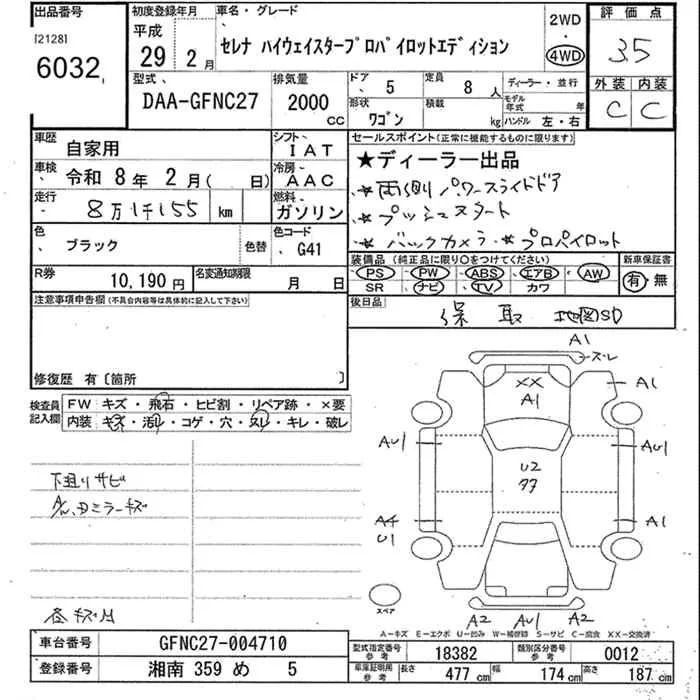 出品番号
[2128]
6032
初度登録年月
平成
29年 2月
車名・グレード
セレナ ハイウェイスタープロパイロットエディション
2WD
・
4WD
評価点
3.5
外装 内装
C C
型式
DAA-GFNC27
排気量
2000
CC
ドア
5
定員
8人
形状
ワゴン
積載
kg
ディーラー・並行
モデル年式 年
ハンドル 左・右
車歴
自家用
シフト
IAT
車検
令和 8年 2月( 日)
冷房
AAC
走行
8万1千155 km
燃料
ガソリン
色
ブラック
色替
色コード
G41
R券
10,190円
名変通知期限
月 日
セールスポイント(正常に機能するものに限ります)
★ディーラー出品
★両側パワースライドドア
★プッシュスタート
★バックカメラ ★プロパイロット
装備品(純正品に限り○をつけてください)
PS PW ABS エアB AW
SR ナビ TV カワ
新車保証書
有・無
後日品
保 取 地図SD
注意事項申告欄(不具合内容等は具体的に記入して下さい)
修復歴 有〔箇所 〕
検査員
記入欄
FW キズ・飛石・ヒビ割・リペア跡・×要
内装 キズ・汚レ・コゲ・穴・スレ・キレ・破レ
下廻りサビ
ドミラーキズ
A1
ズレ
XX
A1
A1
AU1
AU1
U2
A4
U1
A1
スペア
A2 AU1 A2
A―キズ E―エクボ U―凹み W―補修跡 S―サビ C―腐食 XX―交換済
車台番号
GFNC27-004710
登録番号
湘南 359 め 5
型式指定番号
参考
18382
類別区分番号
参考
0012
車庫証明用
参考
長さ 477 cm
幅 174 cm
高さ 187 cm